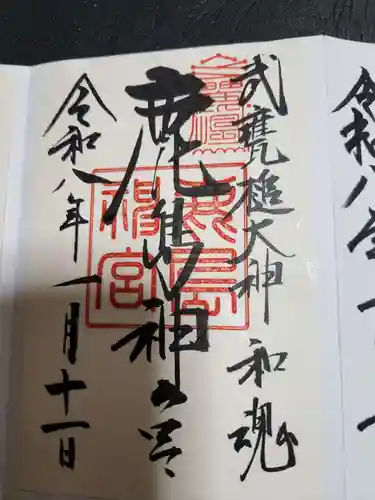 武甕槌大神 和魂
鹿島神宮
令和八年一月十一日
鹿島
神宮
令和八年